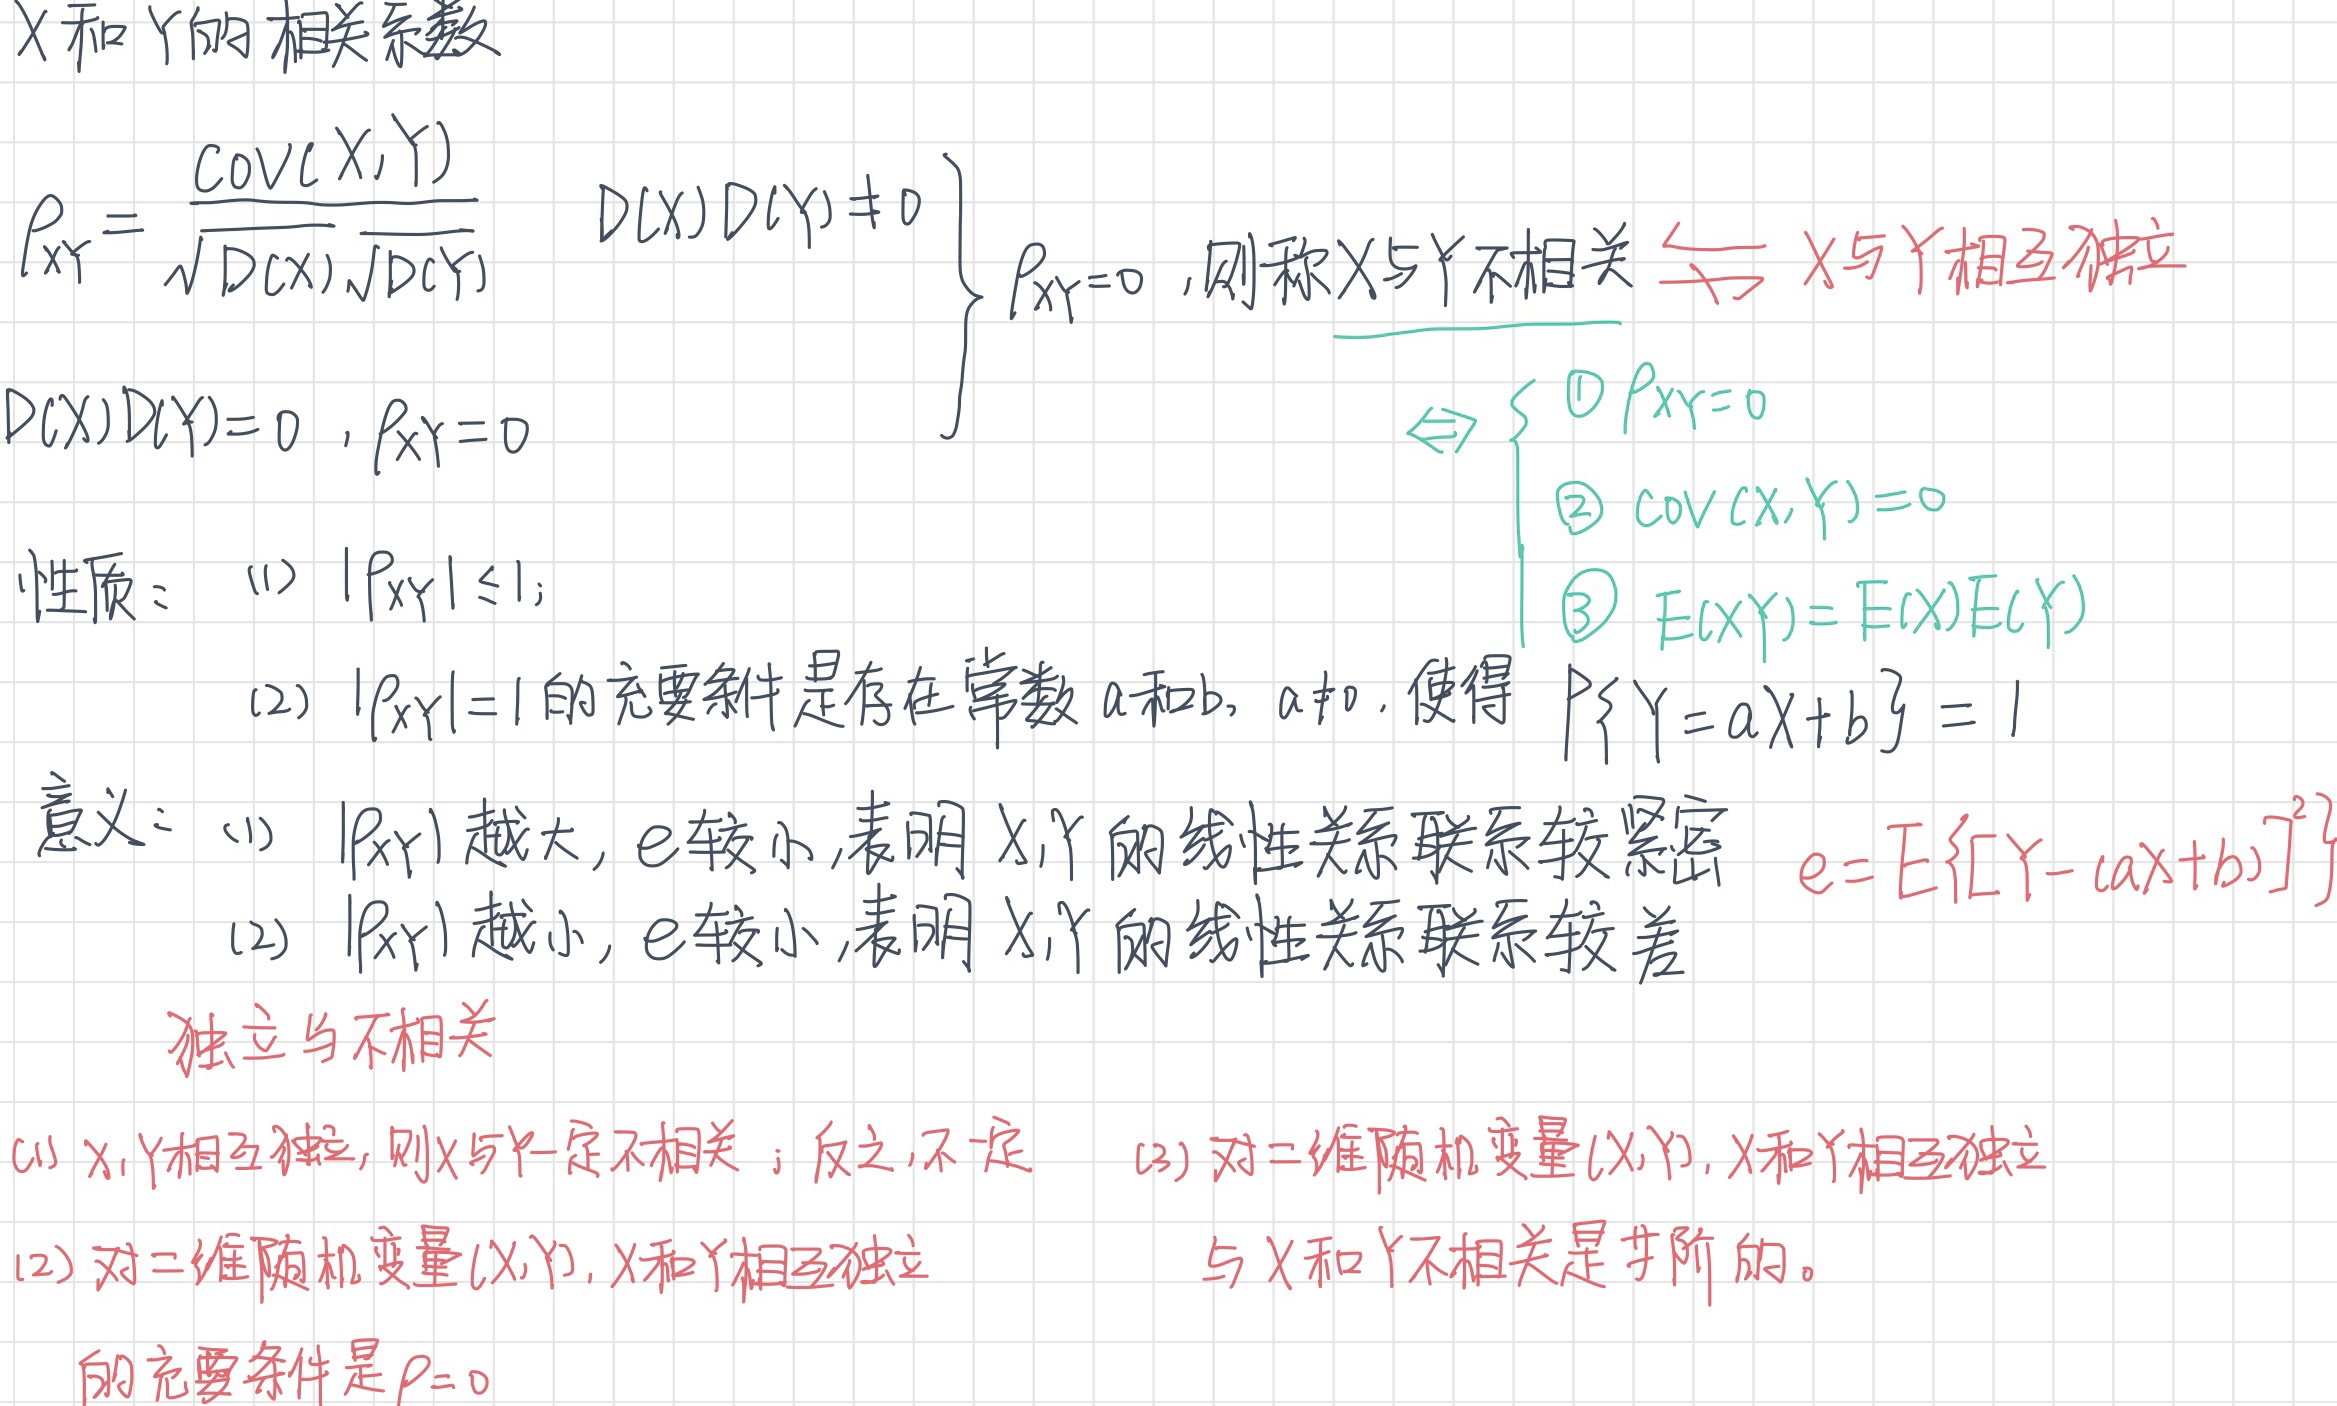 X 和 Y的 相关系数
ρ_XY = COV(X,Y) / √D(X) √D(Y)    D(X) D(Y) ≠ 0
ρ_XY = 0 ,则称X与Y不相关 ⇐ ⇏ X与Y相互独立
D(X) D(Y) = 0 , ρ_XY = 0
⇔ { ① ρ_XY = 0
② COV (X, Y) = 0
③ E(XY) = E(X)E(Y)
性质: (1) |ρ_XY| ≤ 1;
(2) |ρ_XY| = 1 的充要条件是存在常数 a和b, a≠0, 使得 P{Y=aX+b} = 1
意义: (1) |ρ_XY| 越大, e较小,表明 X,Y 的线性关系联系较紧密 e = E{[Y-(aX+b)]²}
(2) |ρ_XY| 越小, e较小,表明 X,Y 的线性关系联系较差
独立与不相关
(1) X,Y相互独立,则X与Y一定不相关;反之,不一定
(2) 对二维随机变量(X,Y), X和Y相互独立
的充要条件是ρ=0
(3) 对二维随机变量(X,Y), X和Y相互独立
与X和Y不相关是 的。